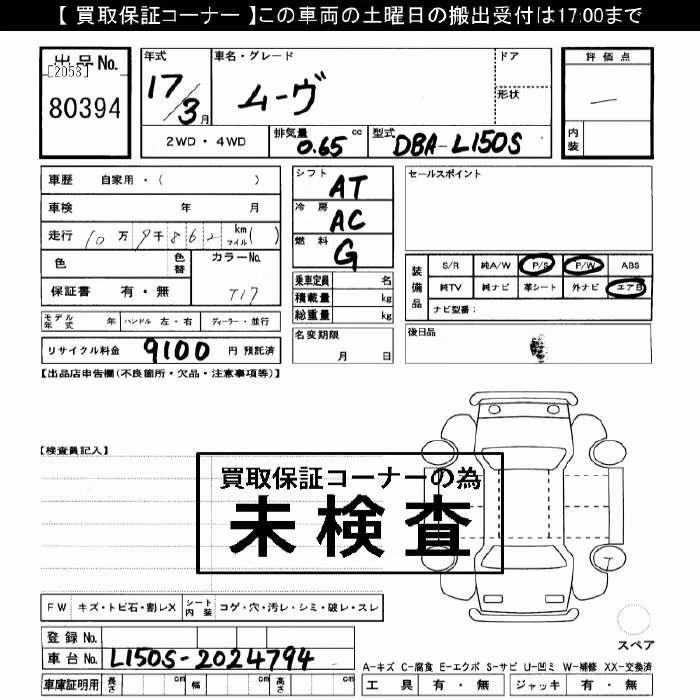 【 買取保証コーナー 】この車両の土曜日の搬出受付は17:00まで
出品No.
[2053]
80394
年式
17/3月
車名・グレード
ムーヴ
ドア
形状
評価点
―
内装
2WD・4WD
排気量 0.65 cc
型式 DBA-L150S
車歴 自家用・( )
車検 年 月
走行 10万9千862 km マイル( )
色
色替
カラーNo.
T17
保証書 有・無
シフト AT
冷房 AC
燃料 G
乗車定員 名
積載量 kg
総重量 kg
セールスポイント
装備品
S/R 純A/W P/S P/W ABS
純TV 純ナビ 革シート 外ナビ エアB
ナビ型番:
モデル年式 年 ハンドル 左・右 ディーラー・並行
リサイクル料金 9100 円 預託済
名変期限
月 日
後日品
【出品店申告欄(不良箇所・欠品・注意事項等)】
【検査員記入】
買取保証コーナーの為
未検査
FW キズ・トビ石・割レX シート内装 コゲ・穴・汚レ・シミ・破レ・スレ
スペア
登録No.
車台No. L150S-2024794
車庫証明用 長さ cm 幅 cm 高さ cm
A-キズ C-腐食 E-エクボ S-サビ U-凹ミ W-補修 XX-交換済
工具 有・無 ジャッキ 有・無